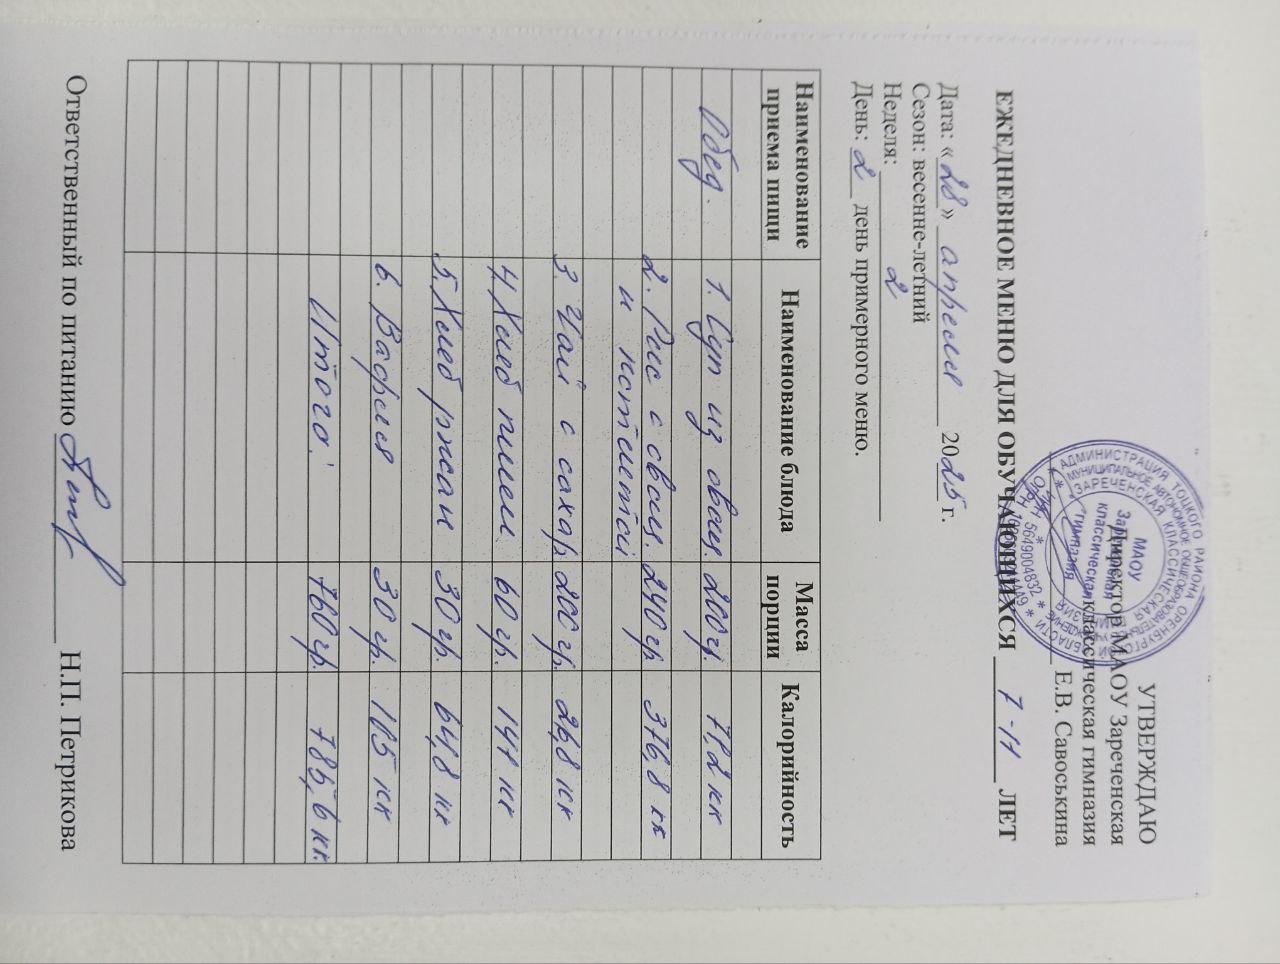 УТВЕРЖДАЮ
Директор МАОУ Зареченская
классическая гимназия
Е.В. Савоськина
АДМИНИСТРАЦИЯ ТОЦКОГО РАЙОНА ОРЕНБУРГСКОЙ ОБЛАСТИ
ЗАРЕЧЕНСКАЯ КЛАССИЧЕСКАЯ ГИМНАЗИЯ
5649004832
МАОУ
Зареченская
классическая
гимназия
ЕЖЕДНЕВНОЕ МЕНЮ ДЛЯ ОБУЧАЮЩИХСЯ 7-11 ЛЕТ
Дата: «28» апреля 2025 г.
Сезон: весенне-летний
Неделя: 2
День: 2 день примерного меню.
Наименование приема пищи Наименование блюда Масса порции Калорийность
Обед. 1. Суп из овощ. 200 г. 71,2 кк
2. Рис с овощ. 240 гр. 376,8 кк
и котлетой
3. Чай с сахар. 200 гр. 26,8 кк
4. Хлеб пшен. 60 гр. 141 кк
5. Хлеб ржан 30 гр. 64,8 кк
6. Вафля 30 гр. 105 кк
Итого: 760 гр. 785,6 кк.
Ответственный по питанию Н.П. Петрикова